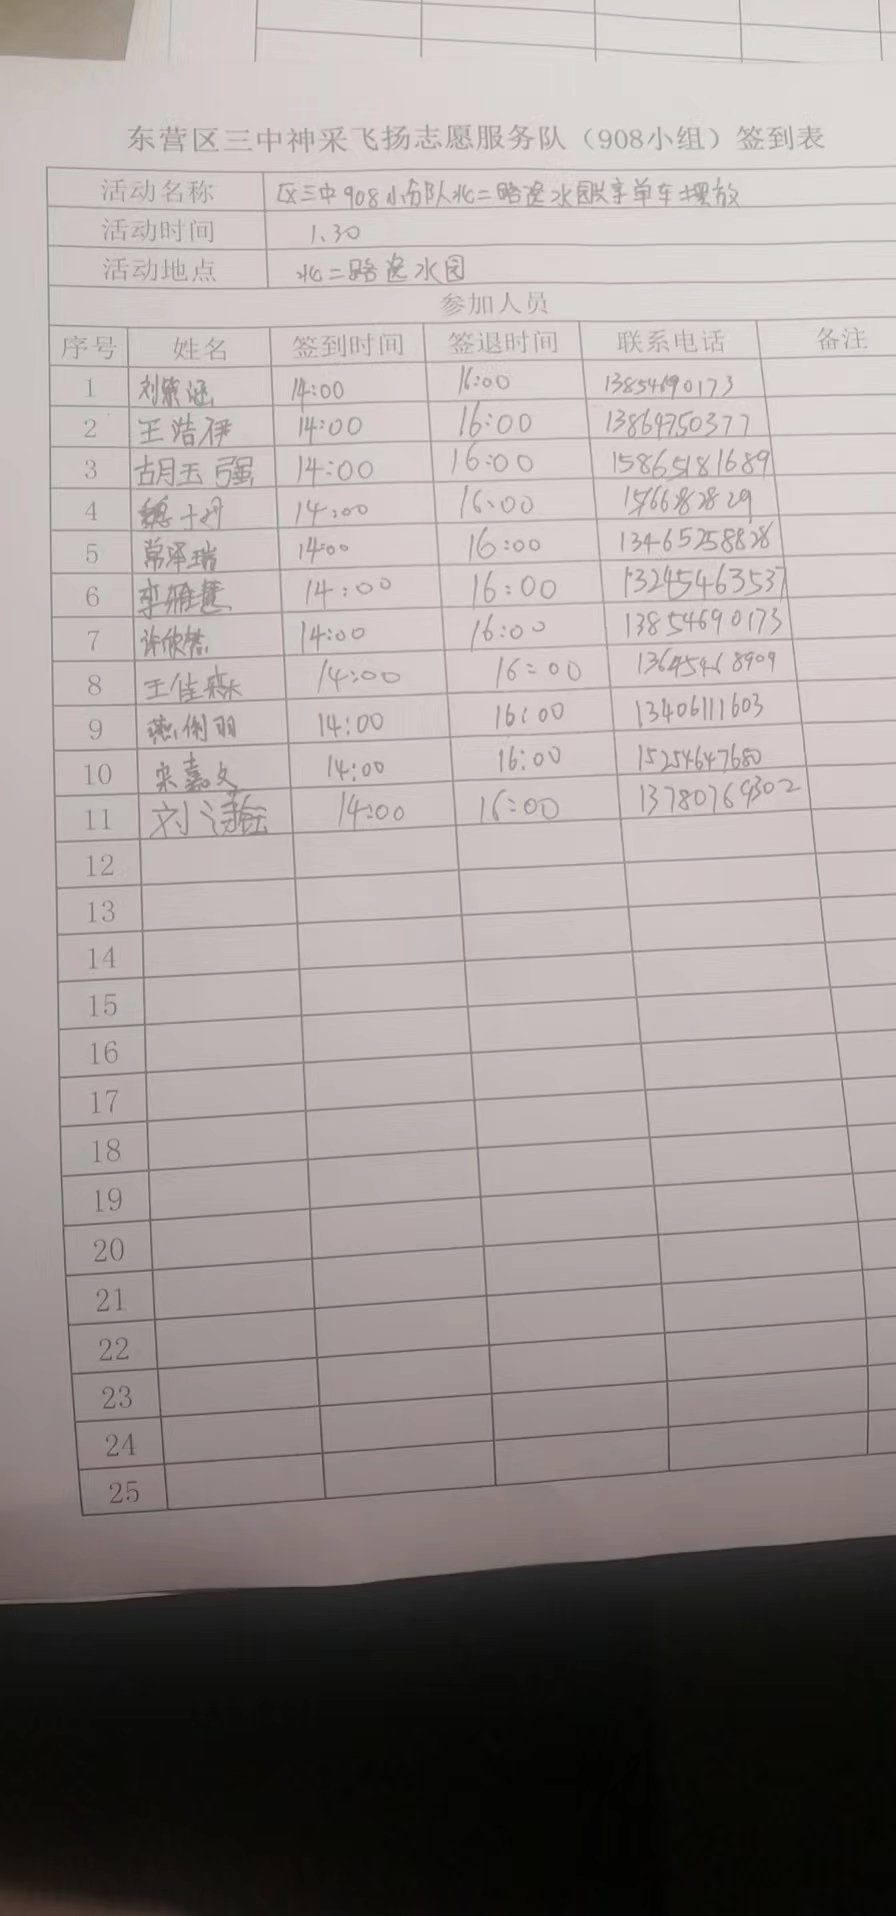 东营区三中神采飞扬志愿服务队（908小组）签到表
活动名称 区三中908小分队北二路逸水园共享单车摆放
活动时间 1.30
活动地点 北二路逸水园
参加人员
序号 姓名 签到时间 签退时间 联系电话 备注
1 刘紫涵 14:00 16:00 13854690173
2 王浩伊 14:00 16:00 13864750377
3 胡玉强 14:00 16:00 15865181689
4 14:00 16:00
5 常泽瑞 14:00 16:00 13465258828
6 李雅慧 14:00 16:00 13245463537
7 许欣然 14:00 16:00 13854690173
8 王佳霖 14:00 16:00 13645468909
9 燕俐羽 14:00 16:00 13406111603
10 宋嘉文 14:00 16:00 15254647680
11 刘 14:00 16:00 13780769302
12
13
14
15
16
17
18
19
20
21
22
23
24
25